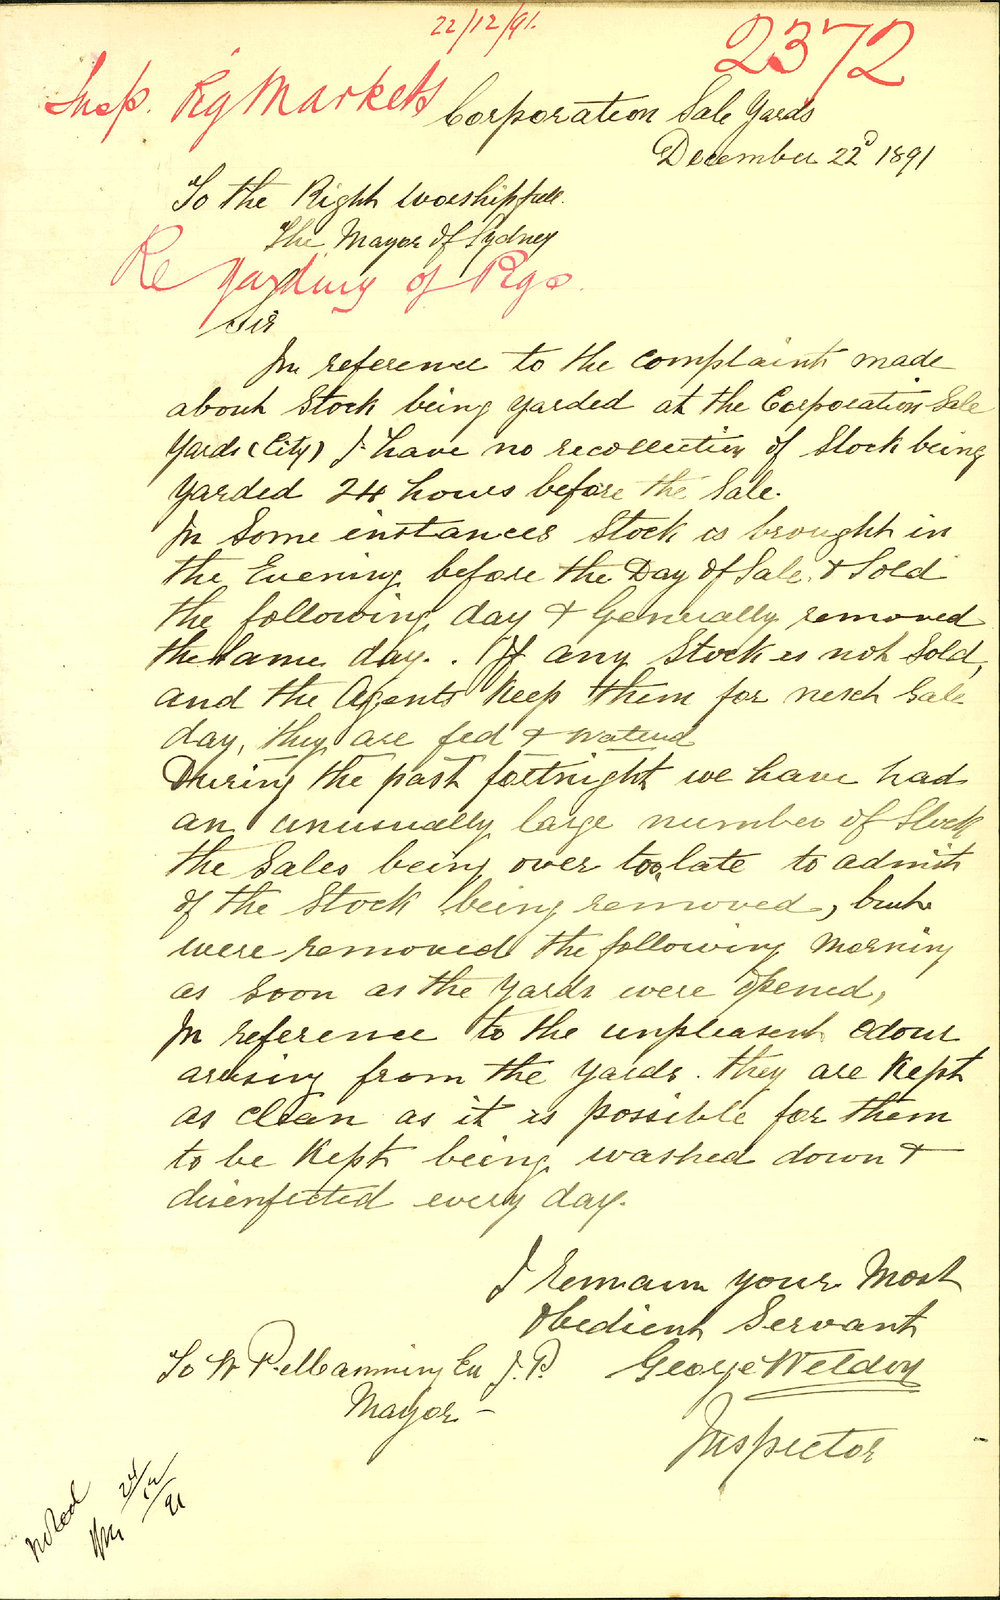 22/12/91.
2372
Insp. Pig Markets
Corporation Sale Yards
December 22d 1891
To the Right Worshipfull.
The Mayor of Sydney
Re Yarding of Pigs.
Sir
In reference to the complaint made
about Stock being yarded at the Corporation Sale
Yards (City) I have no recollection of Stock being
yarded 24 hours before the Sale.
In Some instances Stock is brought in
the Evening before the Day of Sale. & Sold
the following day & Generally removed
the Same day. . If any Stock is not Sold,
and the Agents Keep them for next Sale
day, they are fed & Watered
During the past fortnight we have had
an unusually large number of Stock
the Sales being over too late to admit
of the Stock being removed, but
were removed the following Morning
as Soon as the Yards were Opened,
In reference to the unpleasent Odour
areising from the Yards. they are Kept
as Clean as it is possible for them
to be Kept being washed down &
disenfected every day.
I Remain your Most
Obedient Servant
To W P. Manning J.P.
George Weldon
Mayor -
Inspector
Noted
24/12/91